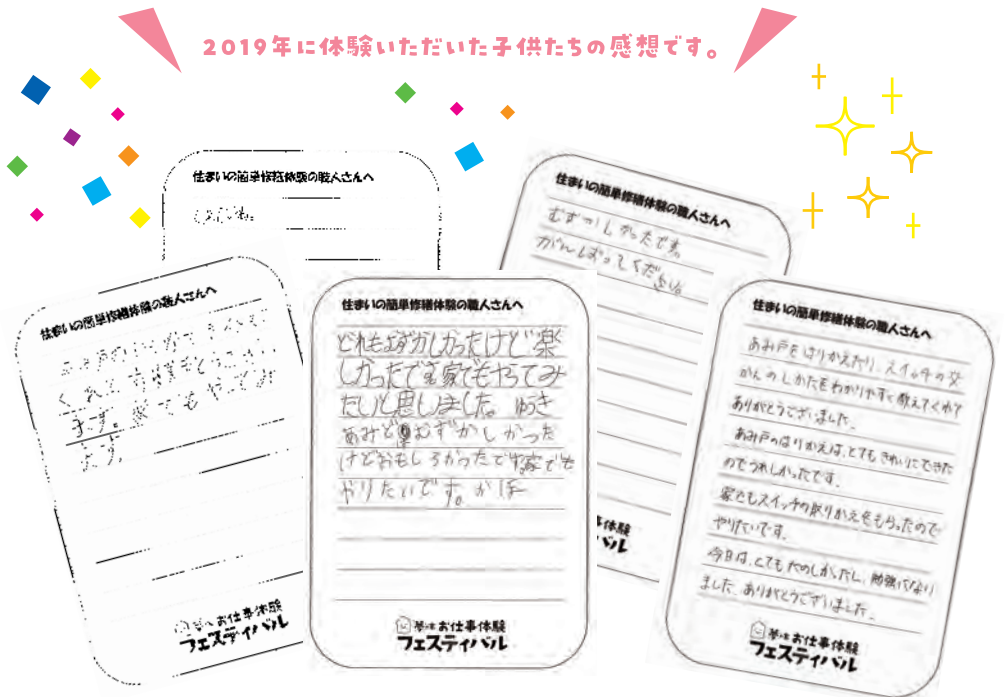 2019年に体験いただいた子供たちの感想です。
住まいの簡単修繕体験の職人さんへ
住まいの簡単修繕体験の職人さんへ
むずかしかったです。
がんばってください。
体験
バル
住まいの簡単修繕体験の職人さんへ
ます。家でもやってみ
ます。
お仕事体験
フェスティバル
住まいの簡単修繕体験の職人さんへ
どれもむずかしかったけど楽
しかったです。家でもやってみ
たいと思いました。ゆうき
あみど むずかしかった
けどおもしろかったです。家でも
やりたいです。かほ
お仕事体験
フェスティバル
住まいの簡単修繕体験の職人さんへ
あみ戸をはりかえたり、スイッチの交
かんのしかたをわかりやすく教えてくれて
ありがとうございました。
あみ戸のはりかえは、とてもきれいにできた
のでうれしかったです。
家でもスイッチの取りかえをもらったので
やりたいです。
今日は、とてもたのしかったし、勉強になり
ました。ありがとうございました。
お仕事体験
フェスティバル